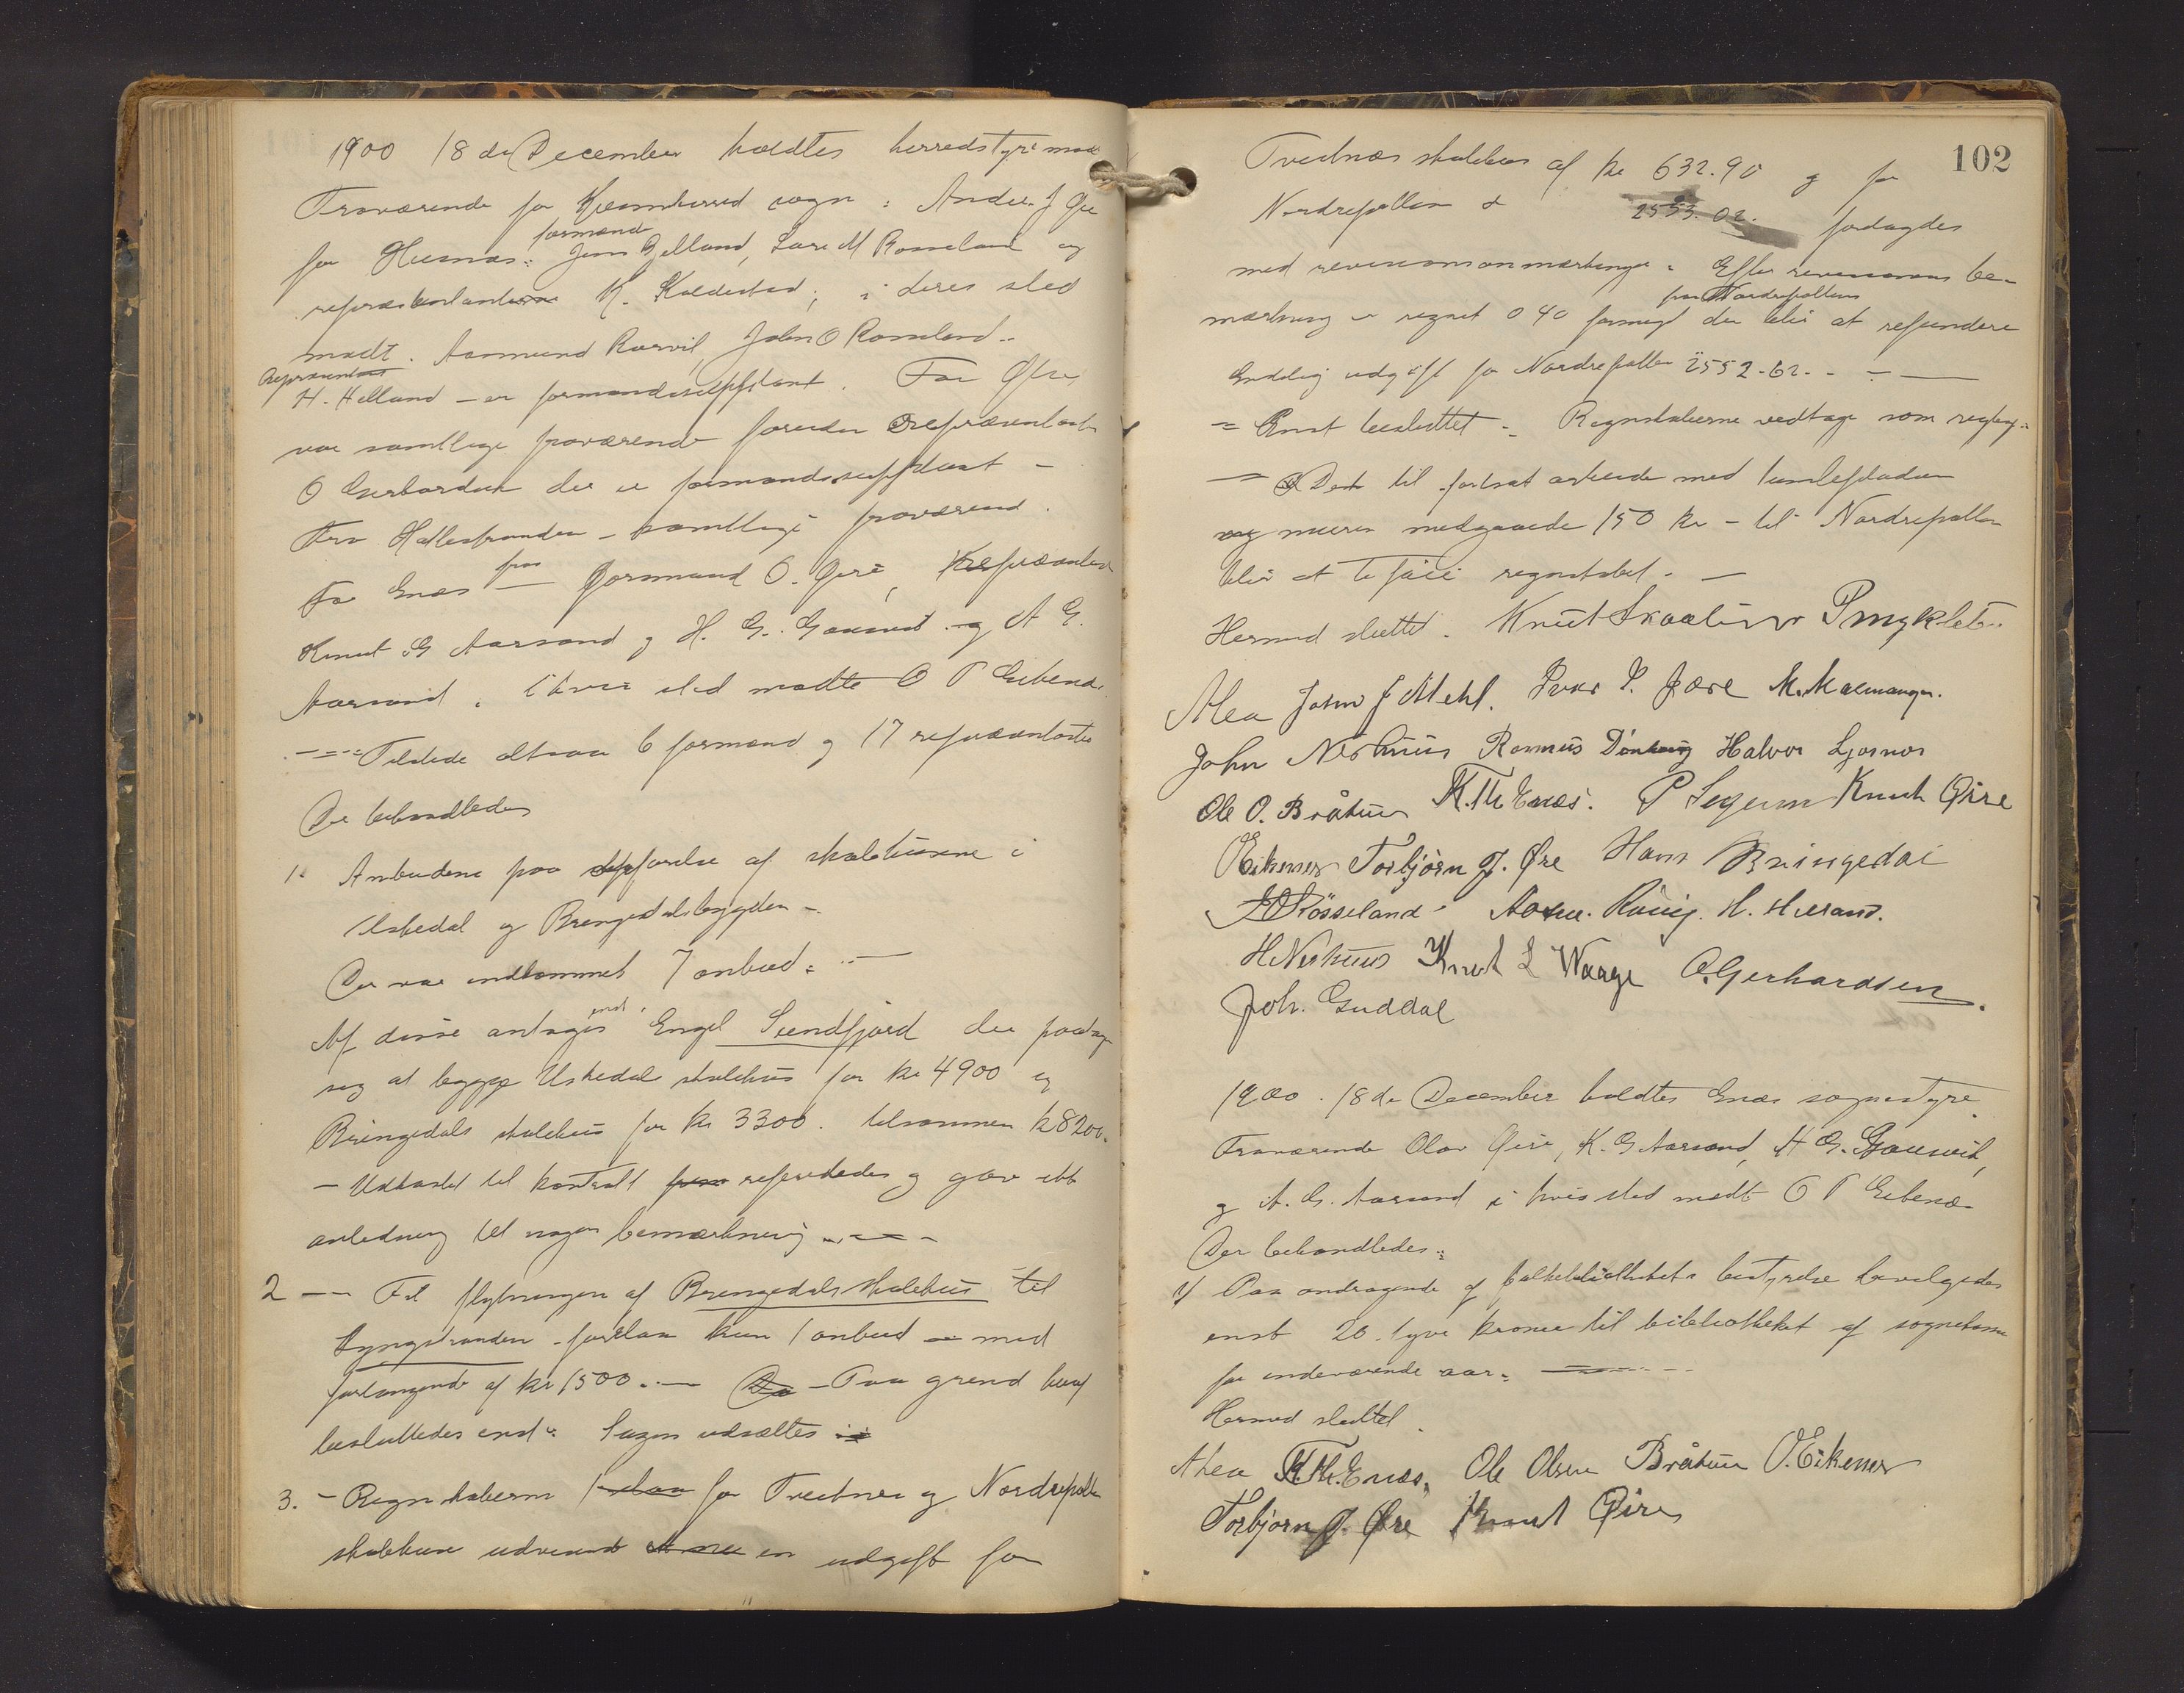 1900 18de December holdtes herredstyremøde
Fraværende for Kvinnherred sogn: Anders J Øie
formænd
for Husnæs: Jens Gjelland, Lars M Rosseland og
repræsentanterne K. Koldestad; i deres sted
mødt. Aamund Røsvil, John O Rosseland
Repræsentant
H. Helland - er formandssuppleant. For Ølve
var samtlige fraværende foruden repræsentant
O Gerhardsen der er formandssuppleant -
Fra Hatlestranden - samtlige fraværend.
fra
For Enæs - Formand O. Øire, Repræsentant
Knut G Aarsand og H. G. Gausvik og A G.
Aarsand, i hvis sted mødte O T Eikenæs
Tilstede altsaa 6 formænd og 17 repræsentanter
Der behandledes
1. Anbudene paa opførelse af skolehusene i
Uskedal og Bringedalsbygden -
Der var indkommet 7 anbud:
enst.
Af disse antages Engel Sundfjord der paatog
sig at bygge Uskedals skolehus for kr 4900 og
Bringedals skolehus for kr 3300. tilsammen kr 8200.
- Udkastet til kontrakt refereredes og gav ikke
anledning til nogen bemærkning
2 - Til flytningen af Bringedals skolehus til
Lyngstranden - forelaa kun 1 anbud - med
forlangende af kr 1500. - Paa grund heraf
besluttedes enst: Sagen udsættes
3. - Regnskaberne for Tveitnes og Nordrepollen
skolehuse udvisende en udgift for
102
Tveitnæs skolehus af kr 632.90 og for
Nordrepollen " 2553.02. fordagdes
med revisionsanmærkninger: Efter revisionens be-
for Nordrepollens
mærkning er regnet 0 40 formeget der blir at refundere
Endelig udgift for Nordrepollen 2552.62.
= Enst besluttet: Regnskaberne vedtages som reglag.
Det til fortsat arbeide med tumlepladsen
og muren medgaaede 150 kr - til Nordrepollen
blir at tilføie regnskabet.
Hermed sluttet. Knut Skaaluren P Myklebu
Mea John J Mehl. Peder P. Jære M. Malmanger.
John Neshuus Rasmus Dønhaug Halvor Ljosnes
Ole O. Bråtun K. Th Enæs. P Seglem Knut Øire
O Eikenes Torbjörn G. Øre Hans Bringedal
J O Rösseland Aam. Røsvig. H. Helland.
H Neshuus Knut L Waage O. Gerhardsen.
Joh. Guddal
1900. 18de December holdtes Enæs sognestyre
Fraværende Olav Øire, K. G Aarsand, H G. Gausvik,
og A. G. Aarsand i hvis sted mødt O T Eikenæs
Der behandledes:
1/ Paa andragende af folkebibliothekets bestyrelse bevilgedes
enst 20. tyve kroner til bibliotheket af sognekassen
for indeværende aar:
Hermed sluttet.
Mea K. Th. Enæs, Ole Olsen Bråtun O. Eikenes
Torbjørn G. Øre Knut Øire